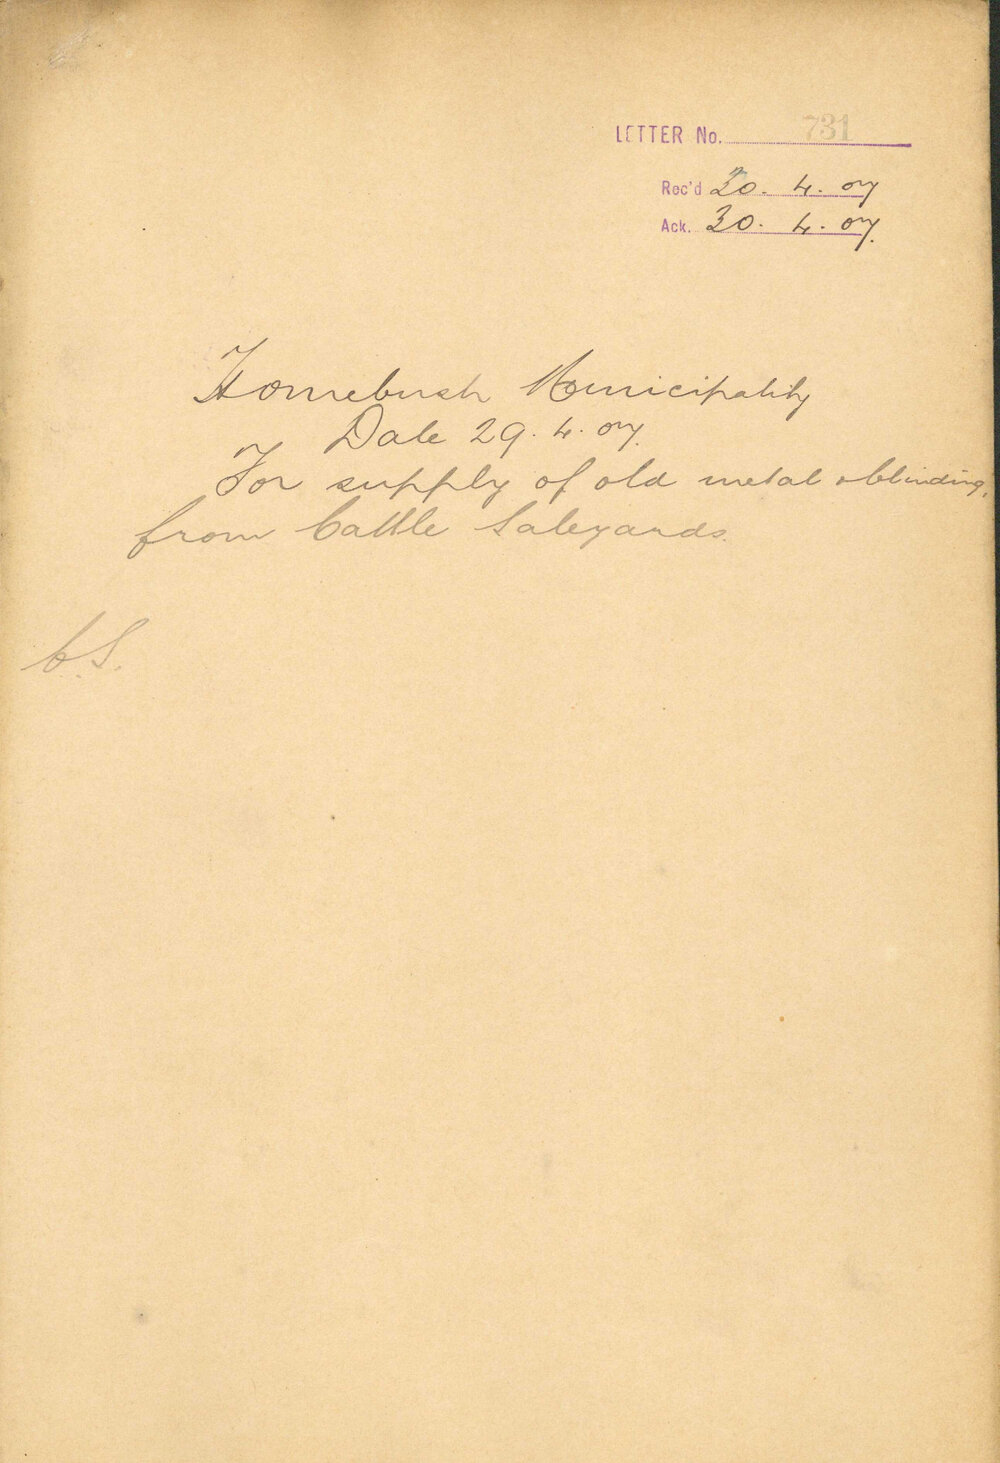 LETTER No. 731
Rec'd 30. 4. 07
Ack. 30. 4. 07.
Homebush Municipality
Date 29. 4. 07.
For supply of old metal & blinding,
from Cattle Saleyards.
C.S.